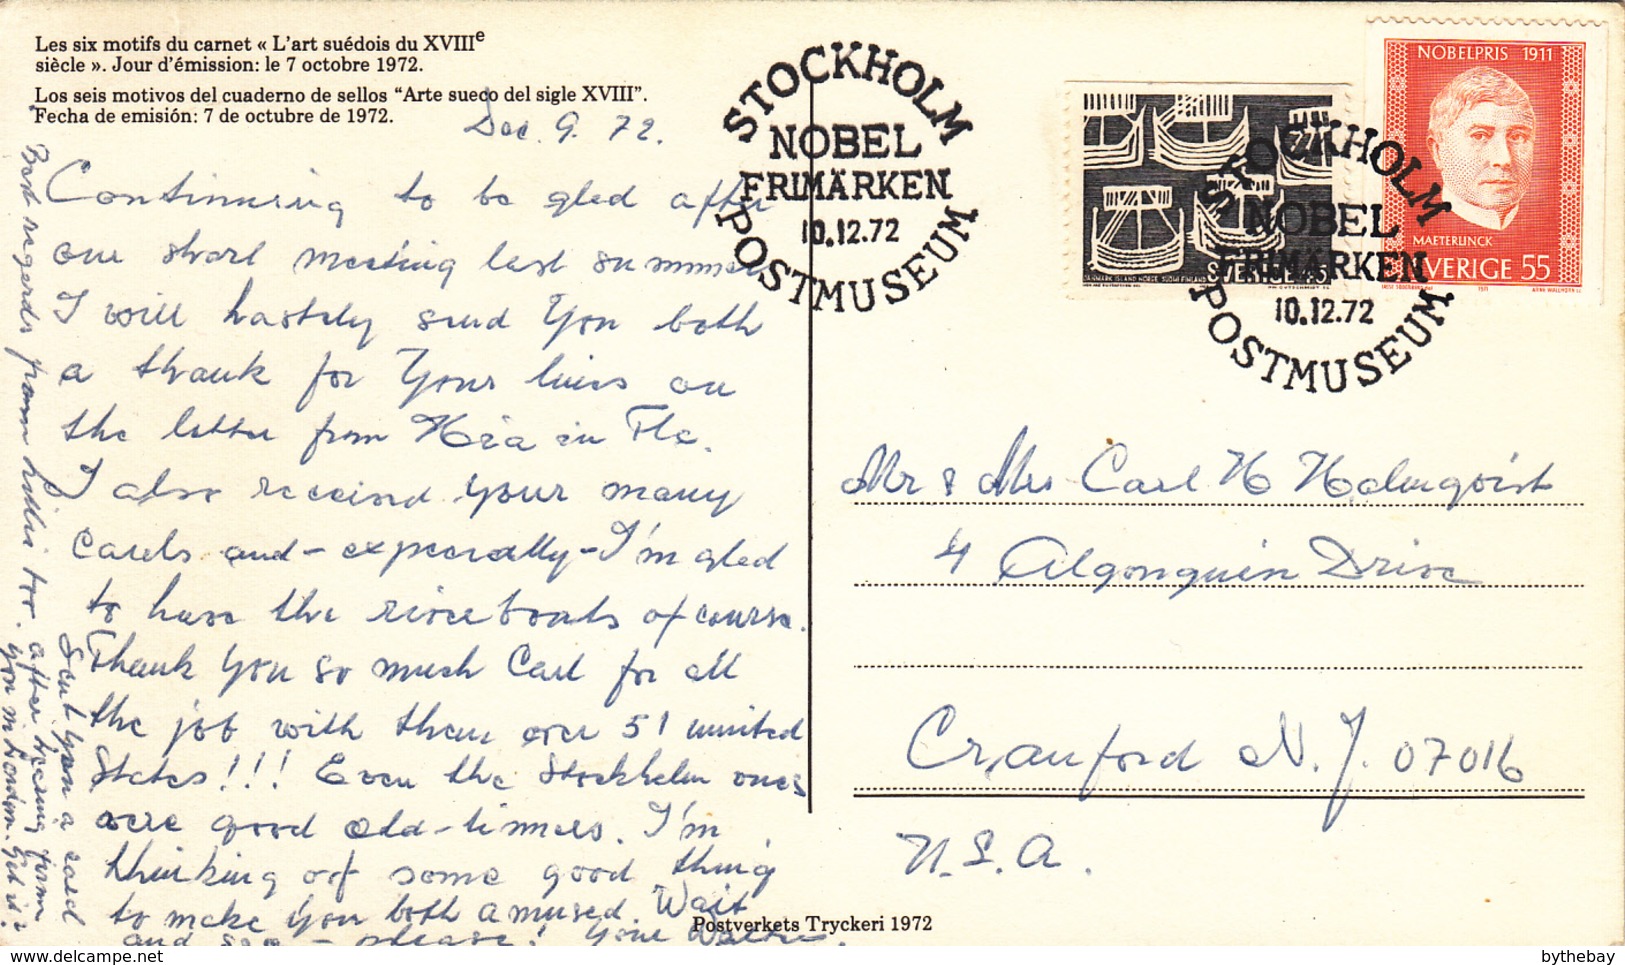 Les six motifs du carnet « L'art suédois du XVIIIe
siècle ». Jour d'émission: le 7 octobre 1972.
Los seis motivos del cuaderno de sellos “Arte sueco del sigle XVIII”.
Fecha de emisión: 7 de octubre de 1972.
Dec. 9. 72.
Continuing to be glad after
our short meeting last summer
I will hastely send you both
a thank for your lines on
the letter from Kia in Fla.
I also received your many
cards and - expecially - I'm glad
to have the riverboats of course.
Thank you so much Carl for all
the job with them over 51 united
States!!! Even the Stockholm ones
were good old-timers. I'm
thinking of some good thing
to make you both amused. Wait
and see - please! Your
Best regards from too.
Sent you a card
after hearing from
you in London. Got it?
STOCKHOLM
NOBEL
FRIMÄRKEN
10.12.72
POSTMUSEUM
SVERIGE 45
DANMARK ISLAND NORGE SUOMI FINLAND
NOBELPRIS 1911
MAETERLINCK
SVERIGE 55
1971
STOCKHOLM
NOBEL
FRIMÄRKEN
10.12.72
POSTMUSEUM
Mr & Mrs Carl H Holmqvist
4 Algonquin Drive
Cranford N.J. 07016
U.S.A.
Postverkets Tryckeri 1972
bythebay